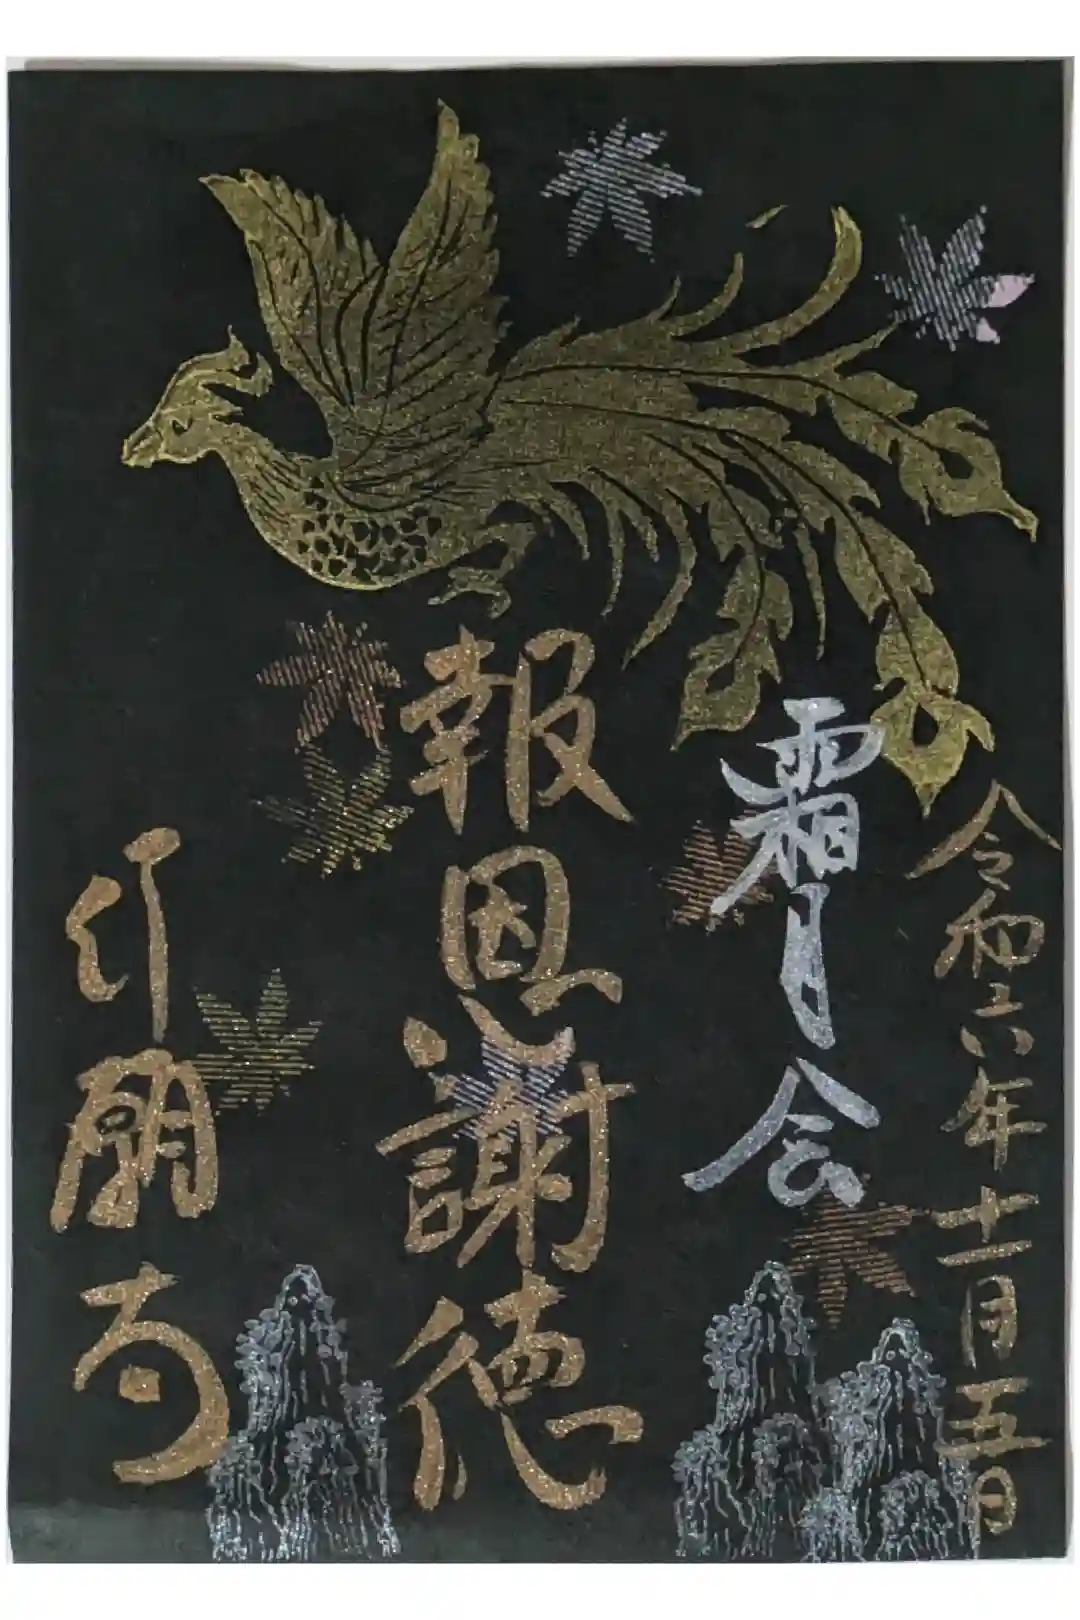 令和六年十一月五日
霜月会
報恩謝徳
寺